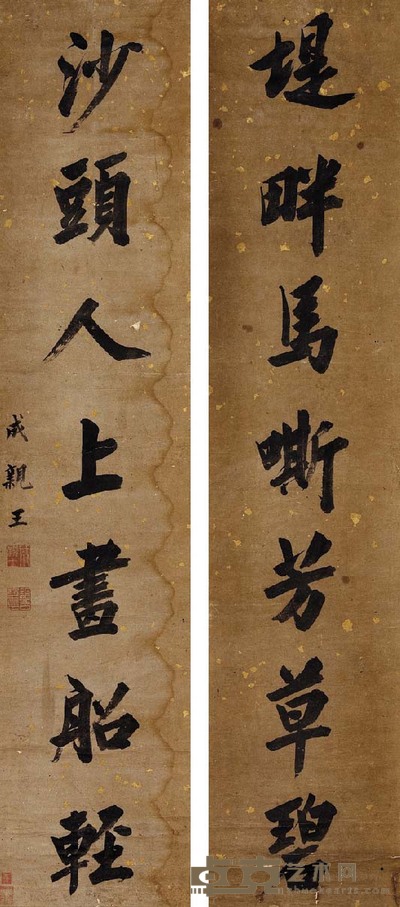 堤畔馬嘶芳草碧
沙頭人上畫船輕
成親王